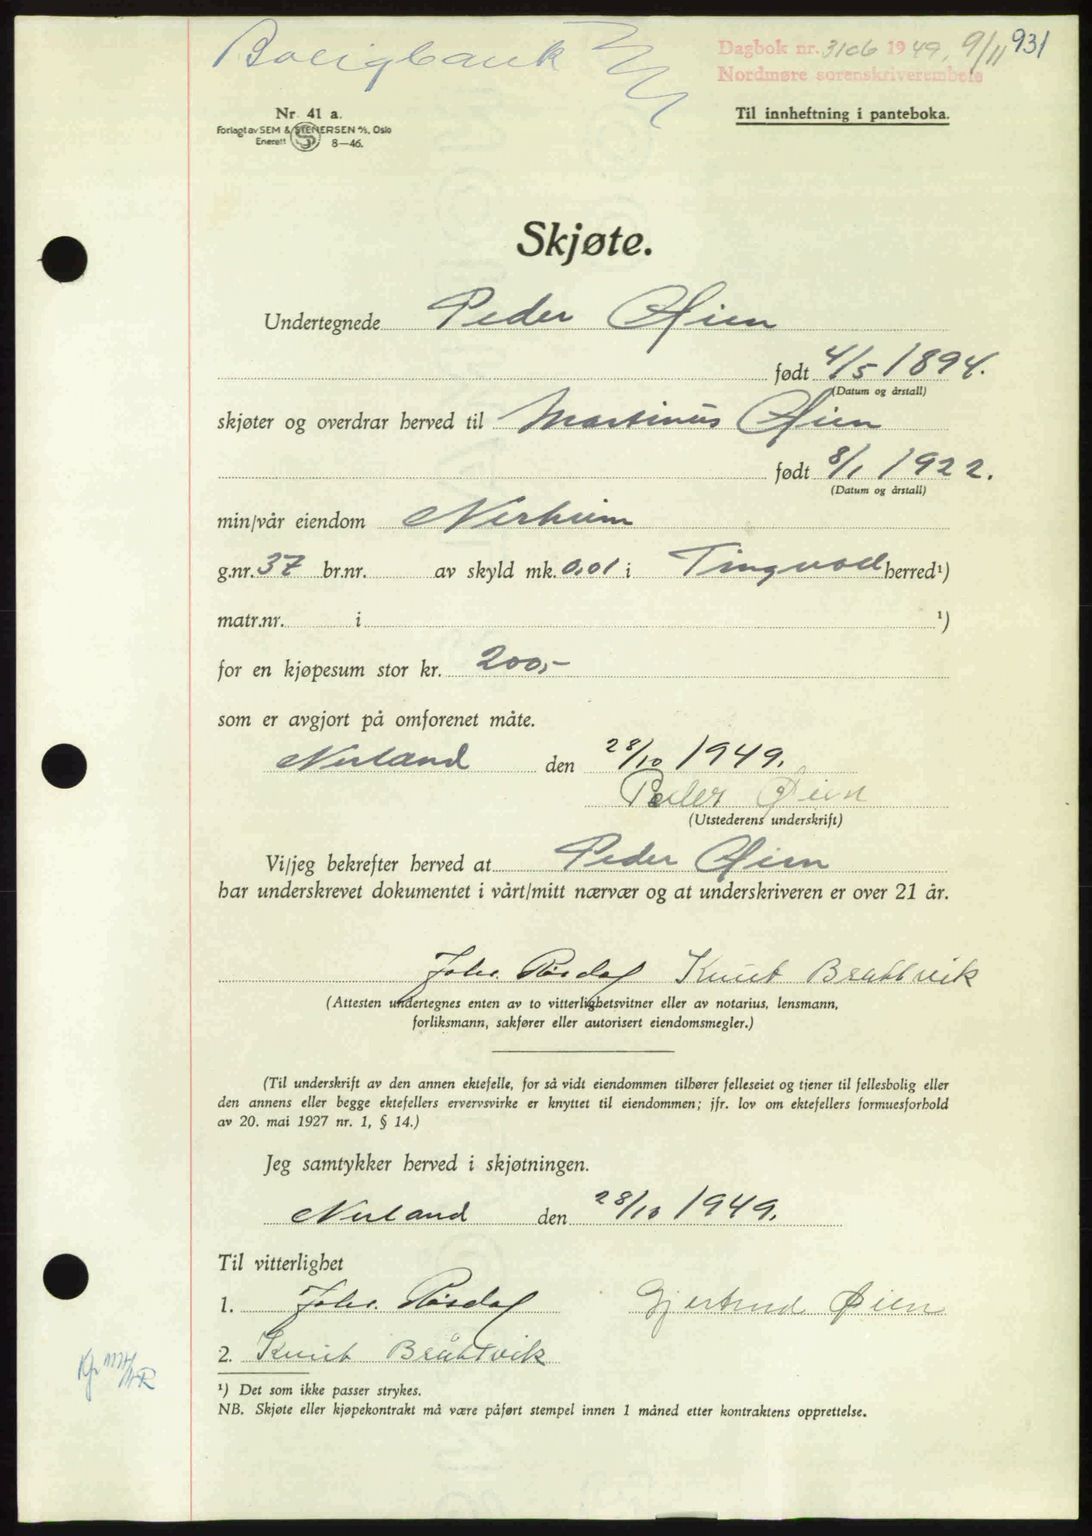 Boligbank
Dagbok nr. 3106 1949, 9/11 931
Nordmøre sorenskriverembete
Nr. 41 a.
Til innheftning i panteboka.
Forlagt av SEM & STENERSEN A/S, Oslo
Enerett 8-46.
Skjøte.
Undertegnede Peder Øien
født 4/5 1894.
(Datum og årstall)
skjøter og overdrar herved til Martinus Øien
født 8/1 1922.
(Datum og årstall)
min/vår eiendom Nerheim
g.nr. 37 br.nr. av skyld mk. 0,01 i Tingvoll herred¹)
matr.nr. i ¹)
for en kjøpesum stor kr. 200,-
som er avgjort på omforenet måte.
Nerland den 28/10 1949.
Peder Øien
(Utstederens underskrift)
Vi/jeg bekrefter herved at Peder Øien
har underskrevet dokumentet i vårt/mitt nærvær og at underskriveren er over 21 år.
Johs. Røsdal Knut Bråttvik
(Attesten undertegnes enten av to vitterlighetsvitner eller av notarius, lensmann,
forliksmann, sakfører eller autorisert eiendomsmegler.)
(Til underskrift av den annen ektefelle, for så vidt eiendommen tilhører felleseiet og tjener til fellesbolig eller
den annens eller begge ektefellers ervervsvirke er knyttet til eiendommen; jfr. lov om ektefellers formuesforhold
av 20. mai 1927 nr. 1, § 14.)
Jeg samtykker herved i skjøtningen.
Nerland den 28/10 1949.
Til vitterlighet
1. Johs. Røsdal Gjertrud Øien
2. Knut Bråttvik
¹) Det som ikke passer strykes.
NB. Skjøte eller kjøpekontrakt må være påført stempel innen 1 måned etter kontraktens opprettelse.